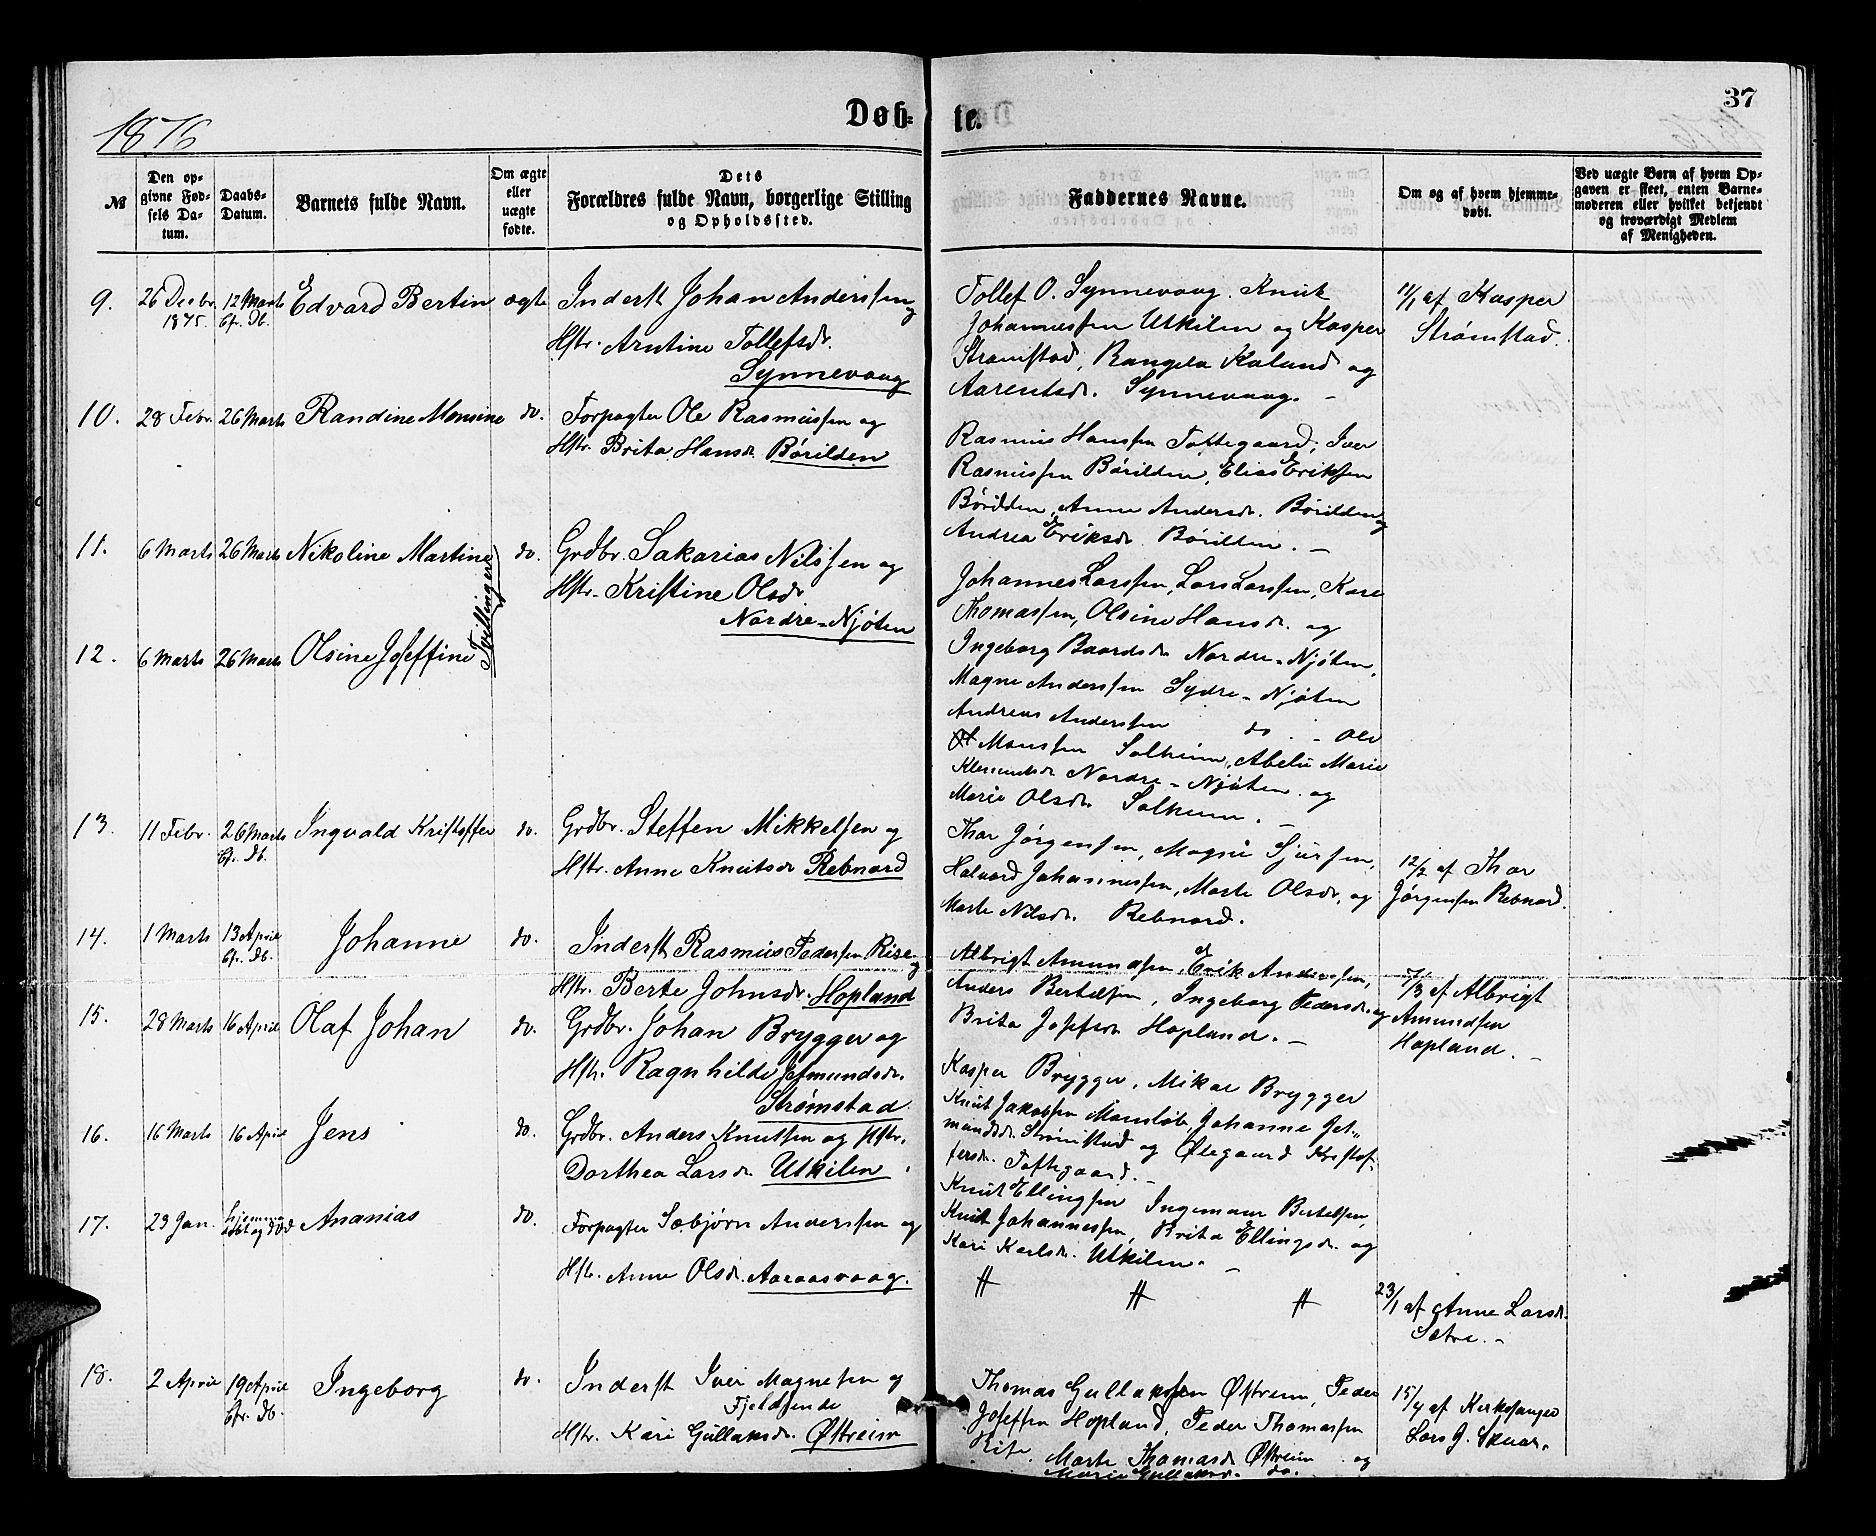 1876
Døb-
te.
37
№
Den op-
givne Fød-
sels Da-
tum.
Daabs-
Datum.
Barnets fulde Navn.
Om ægte
eller
uægte
fødte.
Dets
Forældres fulde Navn, borgerlige Stilling
og Opholdssted.
Faddernes Navne.
Om og af hvem hjemme-
døbt.
Ved uægte Børn af hvem Op-
gaven er skeet, enten Barne-
moderen eller hvilket bekjendt
og troværdigt Medlem
af Menigheden.
9.
26 Decbr.
1875.
12 Marts
Cf. Db.
Edvard Bertin
ægte
Inderst Johan Anderssen og
Hstr. Arntine Tollefsdr.
Synnevaag
Tollef O. Synnevaag. Knut
Johannessen Utkilen og Kasper
Strømstad, Rangela Kaland og
Aarentsdr. Synnevaag. –
11/1 af Kasper
Strømstad.
10.
28 Febr.
26 Marts
Randine Monsine
do.
Forpagter Ole Rasmussen og
Hstr. Brita Hansdr. Börilden
Rasmus Hanssen Toftegaard, Iver
Rasmussen Börilden, Elias Eriksen
Börilden, Anne Andersdr. Börilden og
Andrea Eriksdr. Börilden. –
11.
6 Marts
26 Marts
Nikoline Martine
Tvillinger
do.
Grdbr. Sakarias Nilssen og
Hstr. Kristine Olsdr
Nordre-Njöten
Johannes Larssen, Lars Larssen, Kare
Thomassen, Olsine Hansdr. og
Ingeborg Baardsdr Nordre-Njöten,
12.
6 Marts
26 Marts
Olsine Joseffine
Magne Anderssen Sydre-Njöten
Andreas Anderssen do. – Ole
Monssen Solheim, Abelu Marie
Klemetsdr Nordre-Njöten og
Marie Olsdr. Solheim. –
13.
11 Febr.
26 Marts
Cf. Db.
Ingvald Kristoffer
do.
Grdbr. Steffen Mikkelsen og
Hstr. Anne Knutsdr Rebnord
Thor Jørgensen, Mogne Sjurssen,
Halvard Johannessen, Marte Olsdr. og
Marte Nilsdr. Rebnord.
12/2 af Thor
Jørgensen Rebnord.
14.
1 Marts
13 April
Cf. Db.
Johanne
do.
Inderst Rasmus Pedersen Rise og
Hstr. Berte Johnsdr. Hopland
Albrigt Amundsen, Erik Anderssen,
Anders Bertelsen, Ingeborg Pedersdr. og
Brita Josefsdr Hopland. –
5/3 af Albrigt
Amundsen
Hopland. –
15.
28 Marts
16 April
Olaf Johan
do.
Grdbr. Johan Brygger og
Hstr. Ragnhilde Jetmundsdr.
Strømstad
Kasper Brygger, Mikae Brygger
Knut Jakobsen Monslob, Johanne Jet-
mundsdr. Strømstad og Ølegaard Kristof-
fersdr. Toftegaard. –
16.
16 Marts
16 April
Jens
do.
Grdbr. Anders Knutsen og Hstr.
Dorthea Larsdr. Utkilen
Knut Ellingsen Ingemann Bertelsen,
Knut Johannessen, Brita Ellingsdr. og
Kari Karlsdr. Utkilen. –
17.
23 Jan.
hjemme
døbt og død
Ananias
do.
Forpagter Sæbjørn Anderssen og
Hstr. Anne Olsdr. Aaraasvaag.
23/1 af Anne Larsdr.
Sætre. –
18.
2 April
19 April
Cfr. Db.
Ingeborg
do.
Inderst Iver Magnesen og
Fjeldsende
Hstr. Kari Gullaksdr. Østreim
Thomas Gullaksen Østreim, Peder
Josefsen Hopland, Peder Thomassen
Rise, Marte Thomasdr Østreim og
Marie Gullaksdr. do.
15/4 af Kirkesanger
Lars G. Skaar.